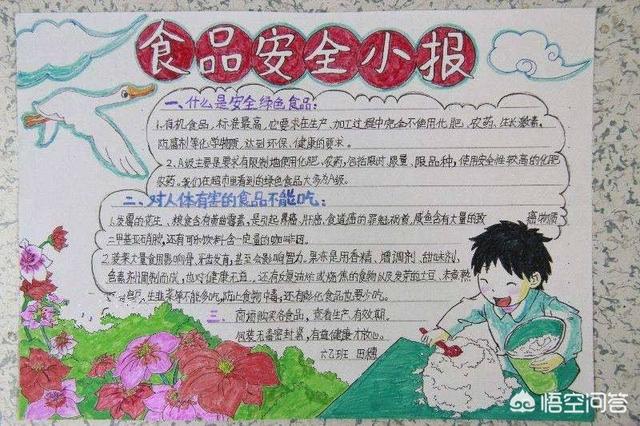 食品安全小报
一、什么是安全绿色食品：
1.有机食品，标准最高，它要求在生产、加工过程中完全不使用化肥、农药、生长激素，
防腐剂等化学物质，达到环保、健康的要求。
2.A级主要是要求有限制地使用化肥，农药，包括限时，限量、限品种，使用安全性较高的化肥
农药。我们在超市里看到的绿色食品大多为A级。
二、对人体有害的食品不能吃：
1.发霉的花生、粮食含有黄曲霉素，是引起胃癌、肝癌、食道癌的罪魁祸首，咸鱼含有大量的致 癌物质
二甲基亚硝胺，还有可乐饮料含一定量的咖啡因。
2.菠菜大量食用影响骨、牙齿发育，甚至会影响智力。果冻是用香精、增调剂、甜味剂、
色素剂调制而成，也对健康无益，还有反复油炸或烧焦的食物以及发芽的土豆、未煮熟
生韭菜等不能多吃，防止食物中毒，还有膨化食品也要少吃。
三、商店购买各食品，查看生产，有效期，
包装无毒密封紧，有益健康才放心。
六乙班 田穗
悟空问答